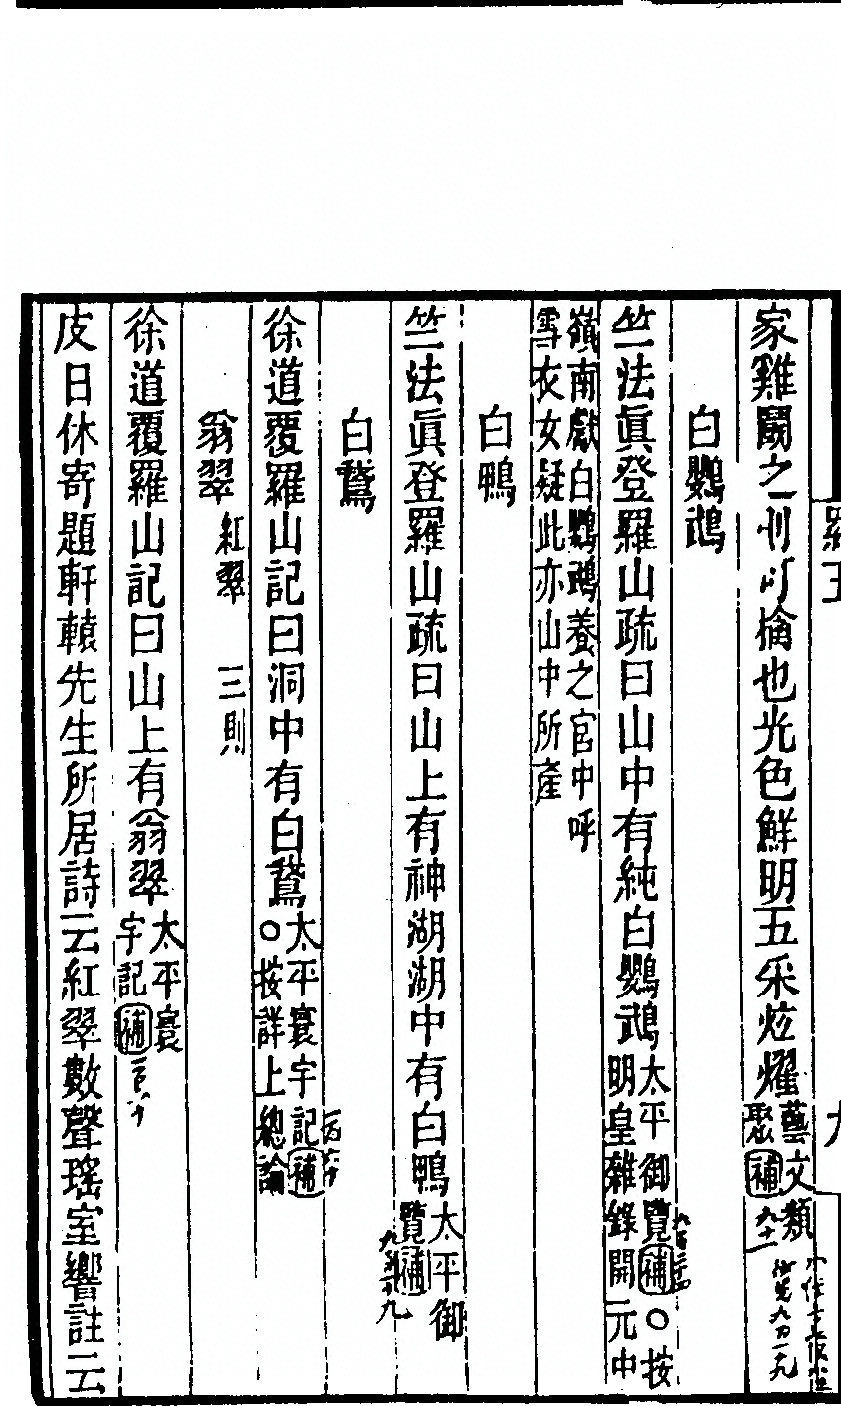 家雞鬭之則可擒也光色鮮明五采炫耀藝文類聚補九十一
白鸚鵡
竺法眞登羅山疏曰山中有純白鸚鵡太平御覽補○按明皇雜錄開元中
嶺南獻白鸚鵡養之宮中呼
雪衣女疑此亦山中所產
白鴨
竺法眞登羅山疏曰山上有神湖湖中有白鴨太平御覽補九百十九
白鵞
徐道覆羅山記曰洞中有白鵞太平寰宇記補○按詳上總論
翁翠 紅翠 三則
徐道覆羅山記曰山上有翁翠太平寰宇記補
皮日休寄題軒轅先生所居詩云紅翠數聲瑤室響註云